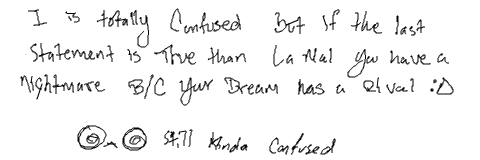 I is totally Confused But If the last
Statement is True than La Mal you have a
Nightmare B/C Your Dream has a Rival :D
O_O Still Kinda Confused